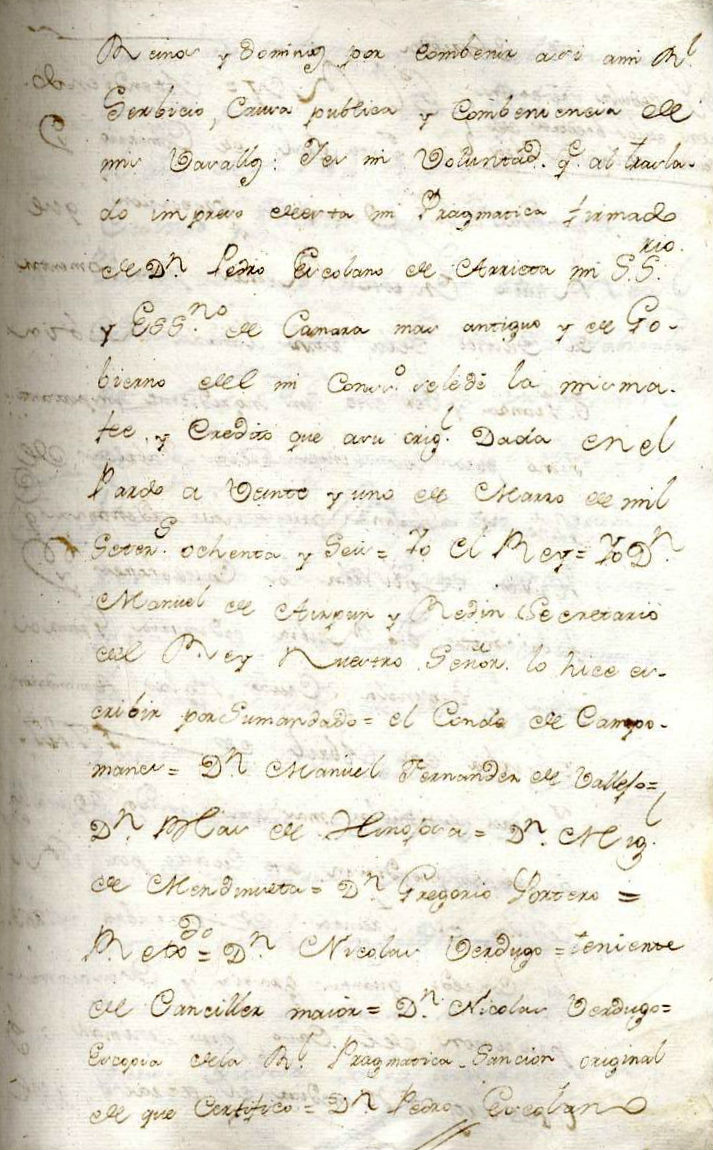 Reinos y Dominios por combenir asi ami Rl
Serbicio, Causa publica y Combeniencia de
mis Vasallos: Ies mi Voluntad. q.e al trasla-
do impreso de esta mi Pragmatica firmado
de Dn. Pedro Escolano de Arrieta mi S.S.rio.
y ESS.no de Camara mas antiguo y de Go-
bierno del mi Cons.o sele dé la misma.
fee, y Credito que asu orig.l Dada en el
Pardo a Veinte y uno de Marzo de mil
Seter.s ochenta y Seis = Yo el Rey = Yo Dn.
Manuel de Aizpun y Redin Secretario
del Rey Nuestro Señor. lo hice es-
cribir por Sumandado = el Conde de Campo-
manes = Dn. Manuel Fernandez de Vallejo =
Dn. Blas de Hinojosa = Dn. Mig.l
de Mendinueta = Dn. Gregorio Portero =
Rexdo = Dn. Nicolas Verdugo = teniente
de Canciller maior = Dn. Nicolas Verdugo =
Escopia dela Rl. Pragmatica Sancion original
de que Certifico = Dn Pedro Escolano